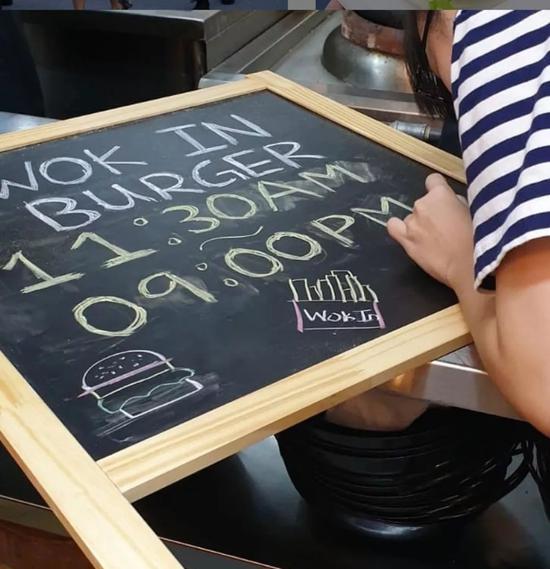 WOK IN
BURGER
11:30AM
~
09:00PM
WOK In